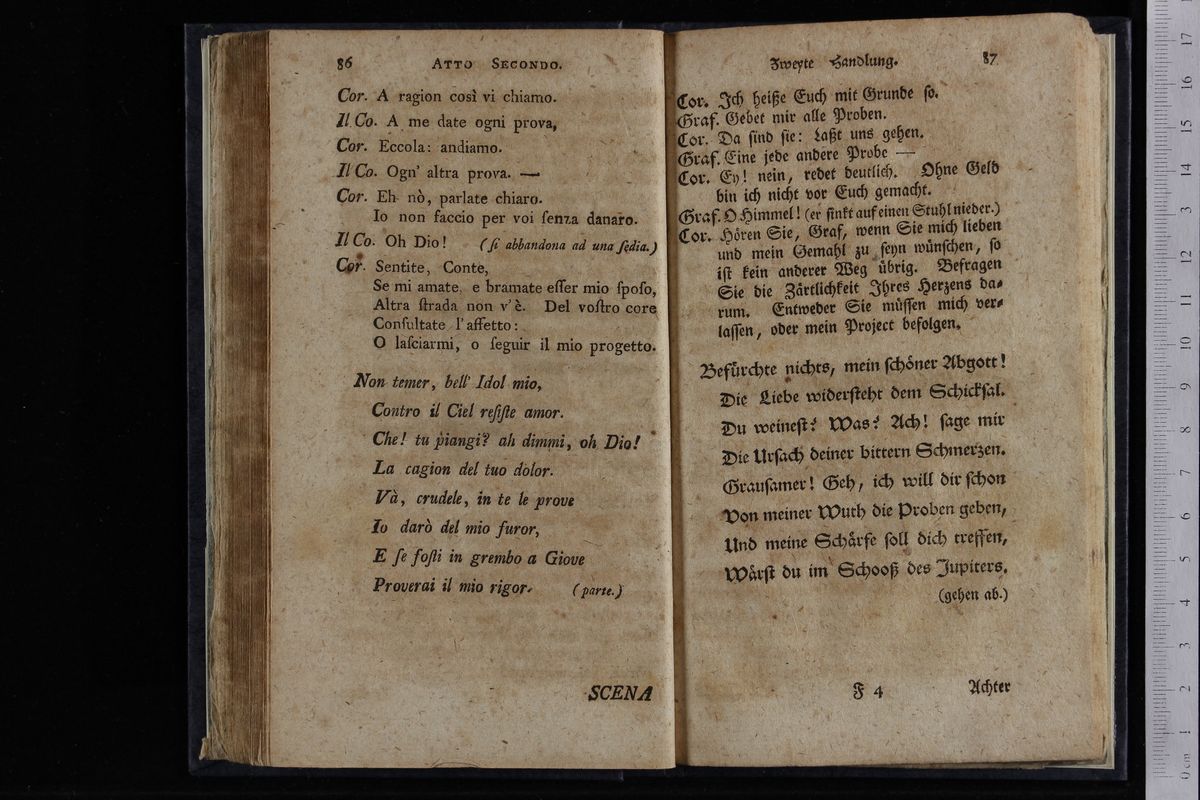 86 ATTO SECONDO.
Cor. A ragion così vi chiamo.
Il Co. A me date ogni prova,
Cor. Eccola: andiamo.
Il Co. Ogn' altra prova. —
Cor. Eh nò, parlate chiaro.
Io non faccio per voi ſenza danaro.
Il Co. Oh Dio! (ſi abbandona ad una ſedia.)
Cor. Sentite, Conte,
Se mi amate e bramate eſſer mio ſpoſo,
Altra ſtrada non v'è. Del voſtro core
Conſultate l'affetto:
O laſciarmi, o ſeguir il mio progetto.
Non temer, bell' Idol mio,
Contro il Ciel reſiſte amor.
Che! tu piangi? ah dimmi, oh Dio!
La cagion del tuo dolor.
Và, crudele, in te le prove
Io darò del mio furor,
E ſe foſti in grembo a Giove
Proverai il mio rigor. (parte.)
SCENA
Zweyte Handlung. 87
Cor. Ich heiße Euch mit Grunde ſo.
Graf. Gebet mir alle Proben.
Cor. Da ſind ſie: Laßt uns gehen.
Graf. Eine jede andere Probe —
Cor. Ey! nein, redet deutlich. Ohne Geld
bin ich nicht vor Euch gemacht.
Graf. O Himmel! (er ſinkt auf einen Stuhl nieder.)
Cor. Hören Sie, Graf, wenn Sie mich lieben
und mein Gemahl zu ſeyn wünſchen, ſo
iſt kein anderer Weg übrig. Befragen
Sie die Zärtlichkeit Ihres Herzens da-
rum. Entweder Sie müſſen mich ver-
laſſen, oder mein Project befolgen.
Befürchte nichts, mein ſchöner Abgott!
Die Liebe widerſteht dem Schickſal.
Du weineſt? Was? Ach! ſage mir
Die Urſach deiner bittern Schmerzen.
Grauſamer! Geh, ich will dir ſchon
Von meiner Wuth die Proben geben,
Und meine Schärfe ſoll dich treffen,
Wärſt du im Schooß des Jupiters.
(gehen ab.)
F 4 Achter
17
16
15
14
13
12
11
10
9
8
7
6
5
4
3
2
1
0 cm